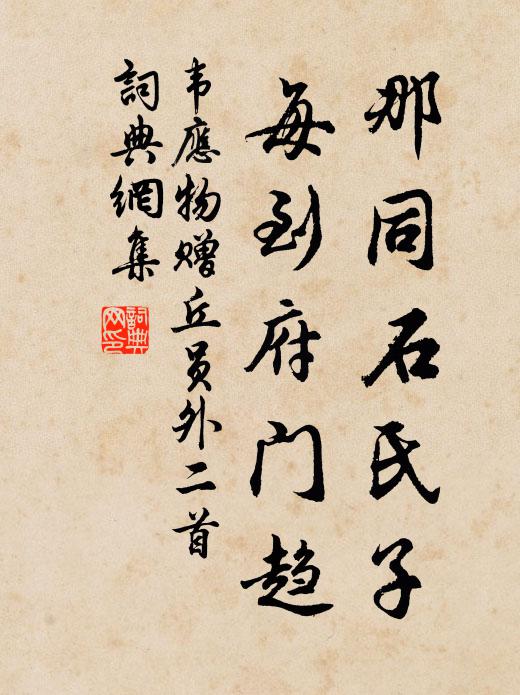 那同石氏子
每到府门趋
韦應物赠丘员外二首
詞典網集
詞典网印